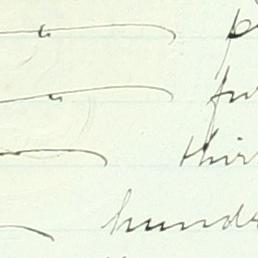 p
fu
thir
hundr